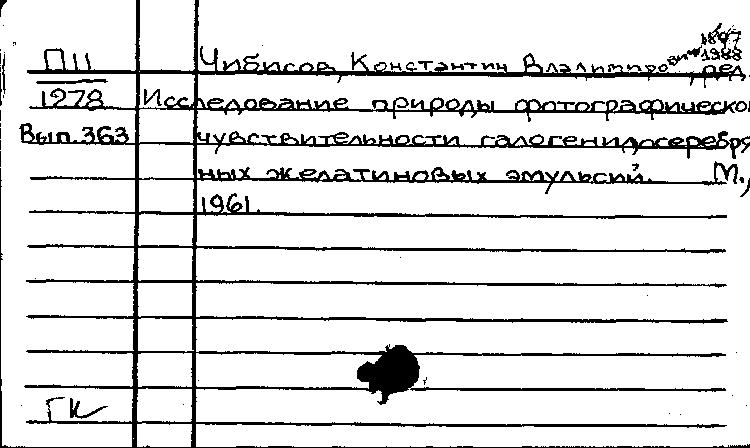 1897
1988
П11 Чибисов, Константин Владимирович, ред.
1278 Исследование природы фотографическо
Вып. 363 чувствительности галогенидосеребря
ных желатиновых эмульсий. М.,
1961.
ГК